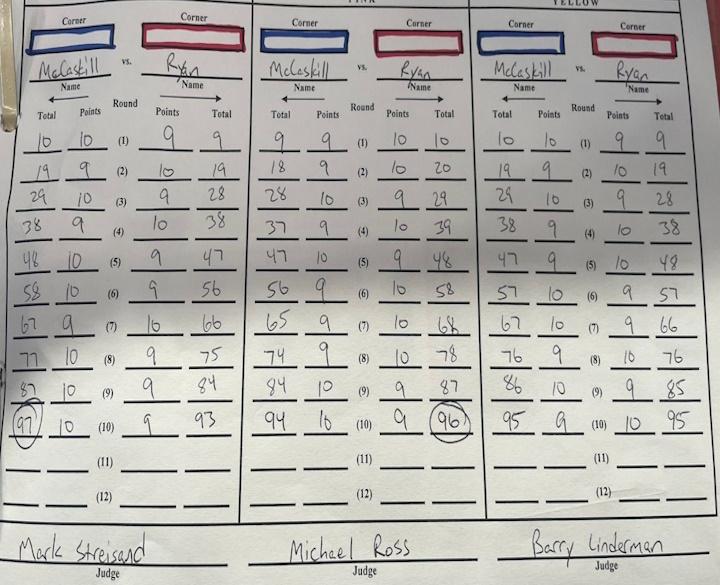 PINK YELLOW
Corner Corner Corner Corner Corner Corner
McCaskill vs. Ryan McCaskill vs. Ryan McCaskill vs. Ryan
Name Name Name Name Name Name
Total Points Round Points Total Total Points Round Points Total Total Points Round Points Total
10 10 (1) 9 9 9 9 (1) 10 10 10 10 (1) 9 9
19 9 (2) 10 19 18 9 (2) 10 20 19 9 (2) 10 19
29 10 (3) 9 28 28 10 (3) 9 29 29 10 (3) 9 28
38 9 (4) 10 38 37 9 (4) 10 39 38 9 (4) 10 38
48 10 (5) 9 47 47 10 (5) 9 48 47 9 (5) 10 48
58 10 (6) 9 56 56 9 (6) 10 58 57 10 (6) 9 57
67 9 (7) 10 66 65 9 (7) 10 68 67 10 (7) 9 66
77 10 (8) 9 75 74 9 (8) 10 78 76 9 (8) 10 76
87 10 (9) 9 84 84 10 (9) 9 87 86 10 (9) 9 85
97 10 (10) 9 93 94 10 (10) 9 96 95 9 (10) 10 95
(11) (11) (11)
(12) (12) (12)
Mark Streisand Michael Ross Barry Linderman
Judge Judge Judge